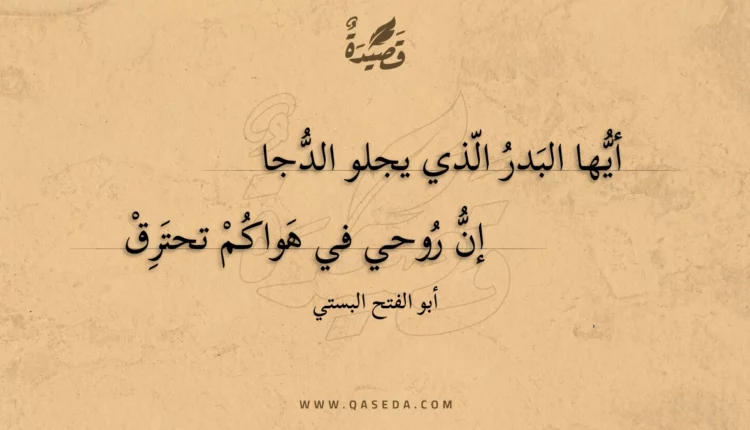 قَصِيْدَةٌ
أيُّها البَدرُ الّذي يجلو الدُّجا
إنُّ رُوحي في هَواكُمْ تحتَرِقْ
أبو الفتح البستي
WWW.QASEDA.COM